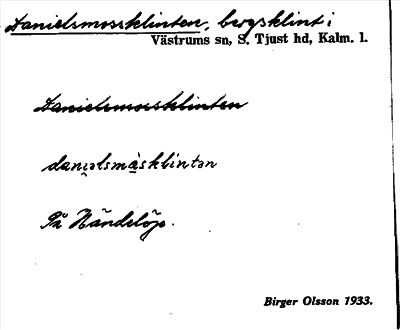 Danielsmossklinten, bergsklint i
Västrums sn, S. Tjust hd, Kalm. l.
Danielsmossklinten
dani̯əlsmåsklintən
På Händelöp.
Birger Olsson 1933.